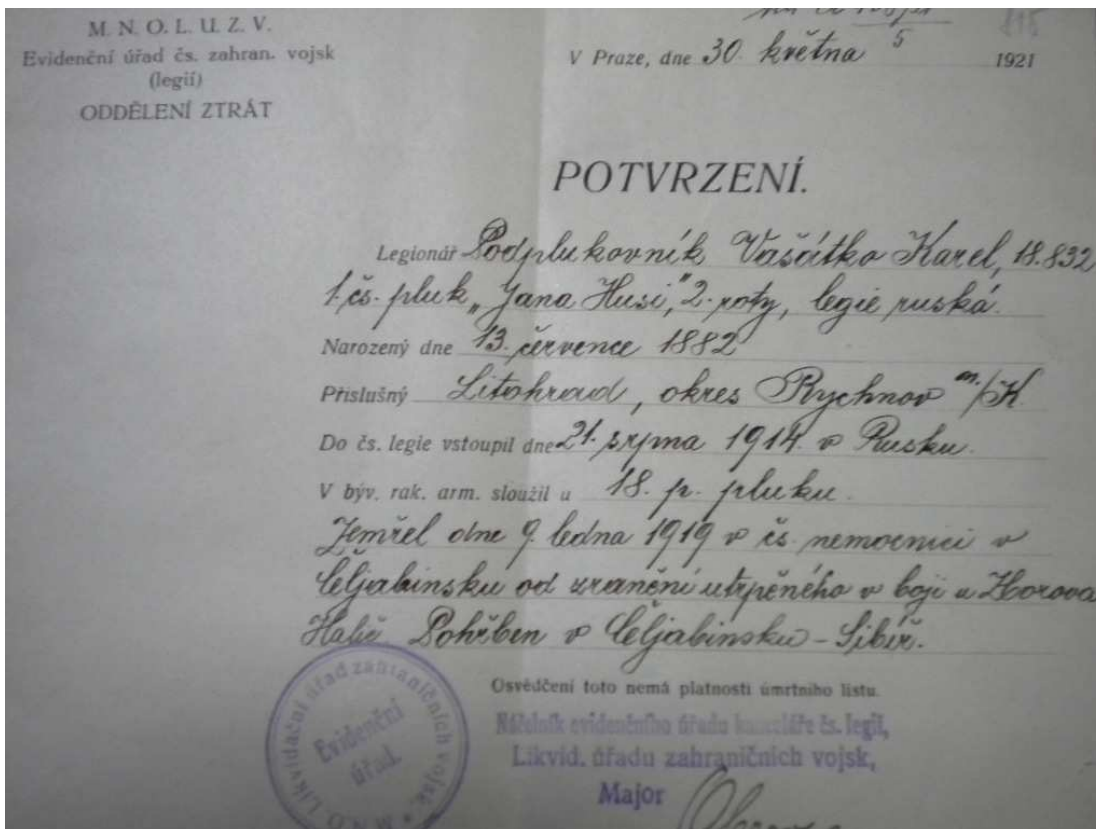 M. N. O. L. U. Z. V.
Evidenční úřad čs. zahran. vojsk
(legií)
ODDĚLENÍ ZTRÁT
V Praze, dne 30. května 5 1921
POTVRZENÍ.
Legionář Podplukovník Vašátko Karel, 18.832
1. čs. pluk „Jana Husi," 2. roty, legie ruská.
Narozený dne 13. července 1882
Příslušný Litohrad, okres Rychnov n./K
Do čs. legie vstoupil dne 21. srpna 1914. v Rusku.
V býv. rak. arm. sloužil u 18. p. pluku.
Zemřel dne 9. ledna 1919 v čs. nemocnici v
Čeljabinsku od zranění utrpěného v boji u Zborova
Halič Pohřben v Čeljabinsku - Sibiř.
Osvědčení toto nemá platnosti úmrtního listu.
Náčelník evidenčního úřadu kanceláře čs. legií,
Likvid. úřadu zahraničních vojsk,
Major
M.N.O. Likvidační úřad zahraničních vojsk
Evidenční
úřad.